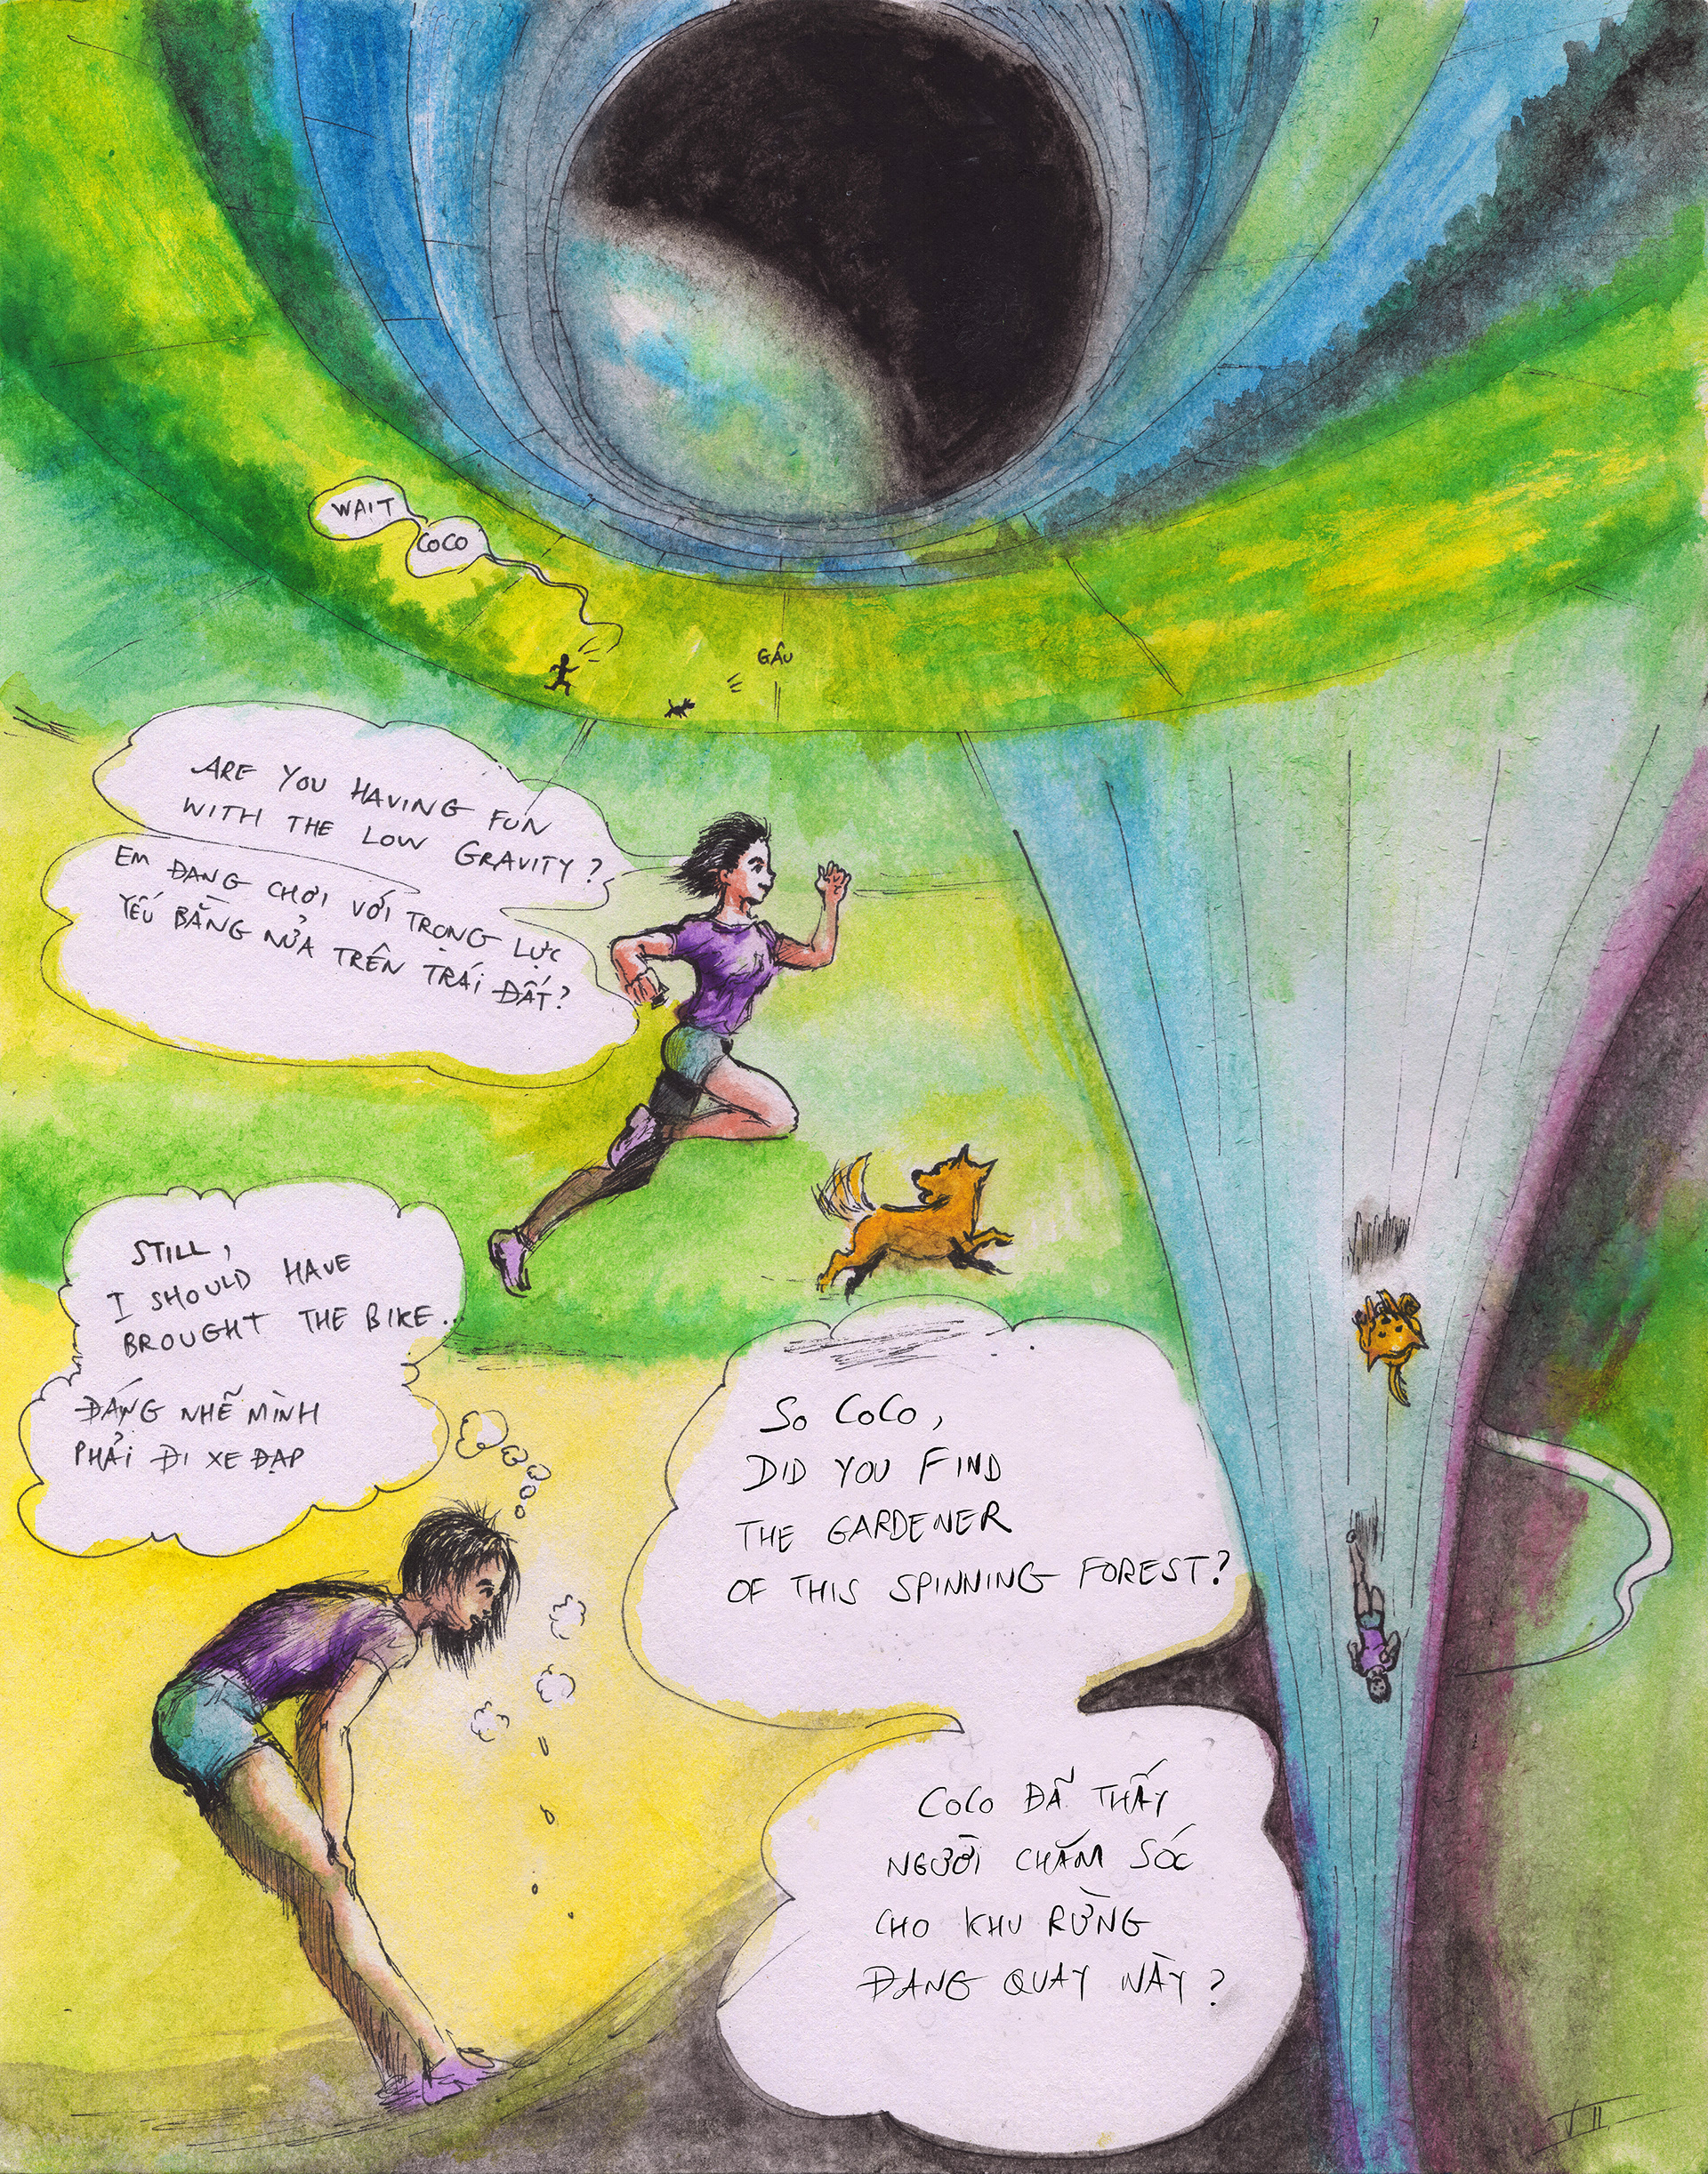 WAIT
COCO
GÂU
ARE YOU HAVING FUN
WITH THE LOW GRAVITY?
EM ĐANG CHƠI VỚI TRỌNG LỰC
YẾU BẰNG NỬA TRÊN TRÁI ĐẤT?
STILL,
I SHOULD HAVE
BROUGHT THE BIKE..
ĐÁNG NHẼ MÌNH
PHẢI ĐI XE ĐẠP
SO COCO,
DID YOU FIND
THE GARDENER
OF THIS SPINNING FOREST?
COCO ĐÃ THẤY
NGƯỜI CHĂM SÓC
CHO KHU RỪNG
ĐANG QUAY NÀY?
VII